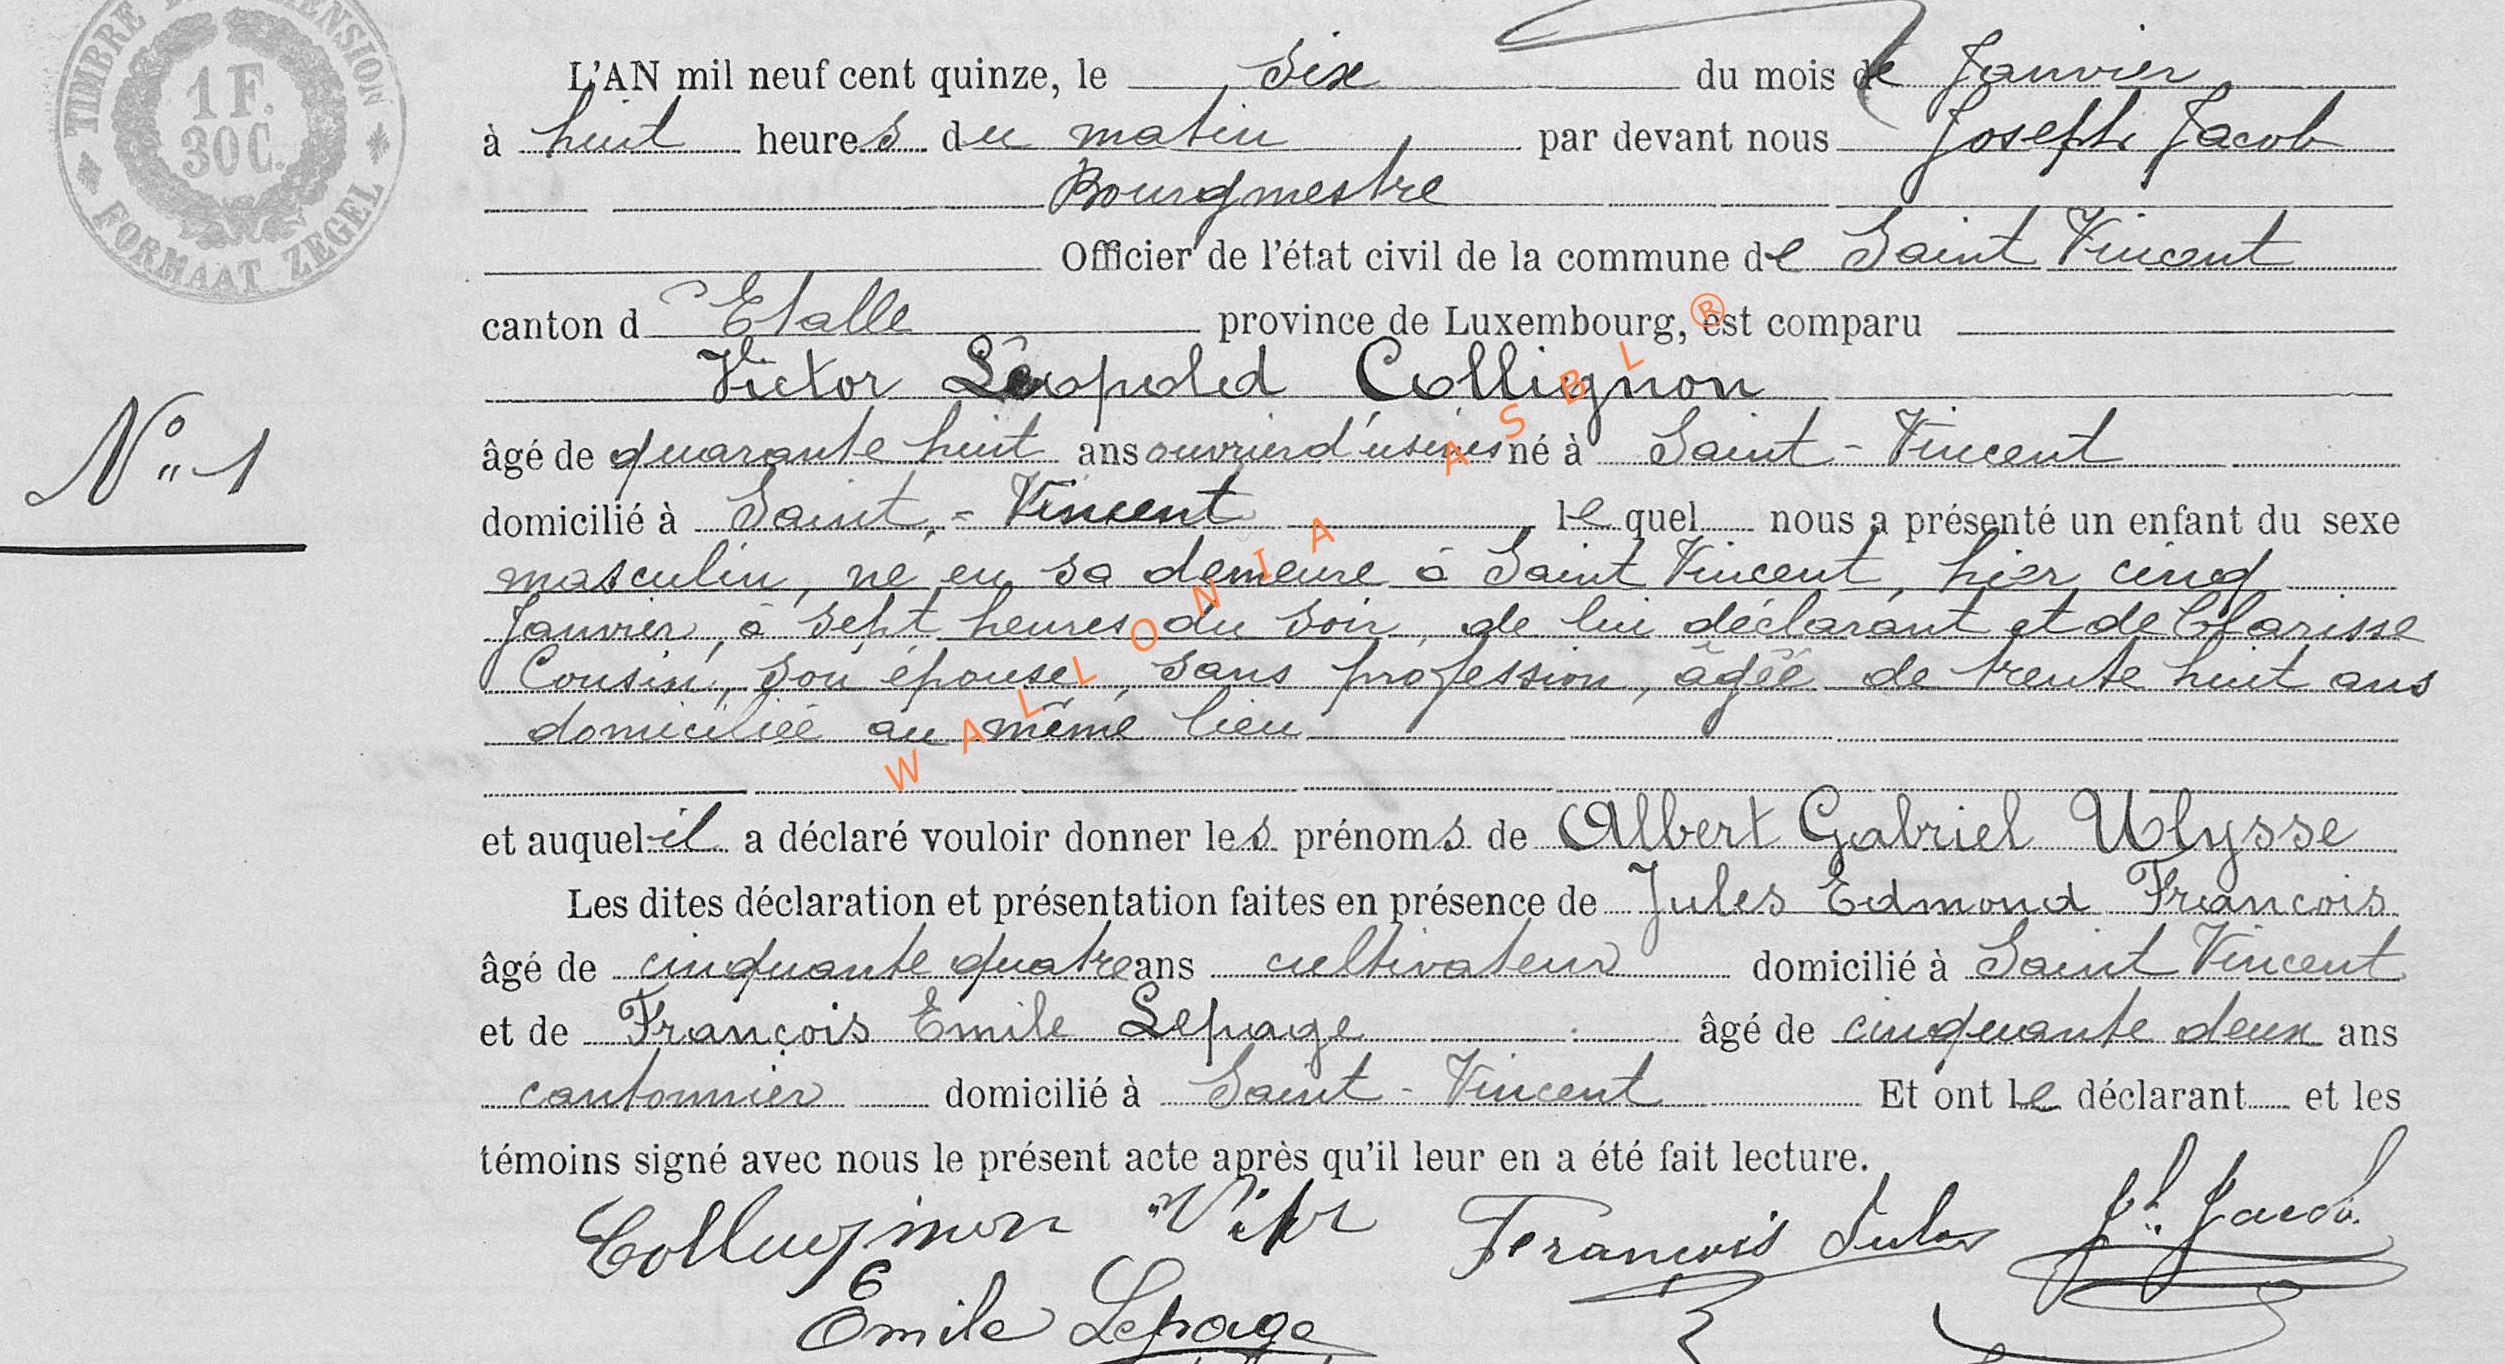 TIMBRE DIMENSION
1 F.
30 C.
FORMAAT ZEGEL
L'AN mil neuf cent quinze, le six du mois de Janvier
à huit heures du matin par devant nous Joseph Jacob
Bourgmestre
Officier de l'état civil de la commune de Saint Vincent
canton d'Etalle province de Luxembourg, est comparu
Victor Léopold Collignon
N° 1
âgé de quarante huit ans ouvrier d'usines né à Saint-Vincent
domicilié à Saint-Vincent lequel nous a présenté un enfant du sexe
masculin, né en sa demeure à Saint Vincent, hier cinq
Janvier, à sept heures du soir, de lui déclarant et de Clarisse
Cousin, son épouse, sans profession, âgée de trente huit ans
domiciliée au même lieu
et auquel il a déclaré vouloir donner les prénoms de Albert Gabriel Ulysse
Les dites déclaration et présentation faites en présence de Jules Edmond François
âgé de cinquante quatre ans cultivateur domicilié à Saint Vincent
et de François Emile Lepage âgé de cinquante deux ans
cantonnier domicilié à Saint-Vincent Et ont le déclarant et les
témoins signé avec nous le présent acte après qu'il leur en a été fait lecture.
Collignon Victor François Jules Jh. Jacob
Emile Lepage
WALLONIA ASBL ®